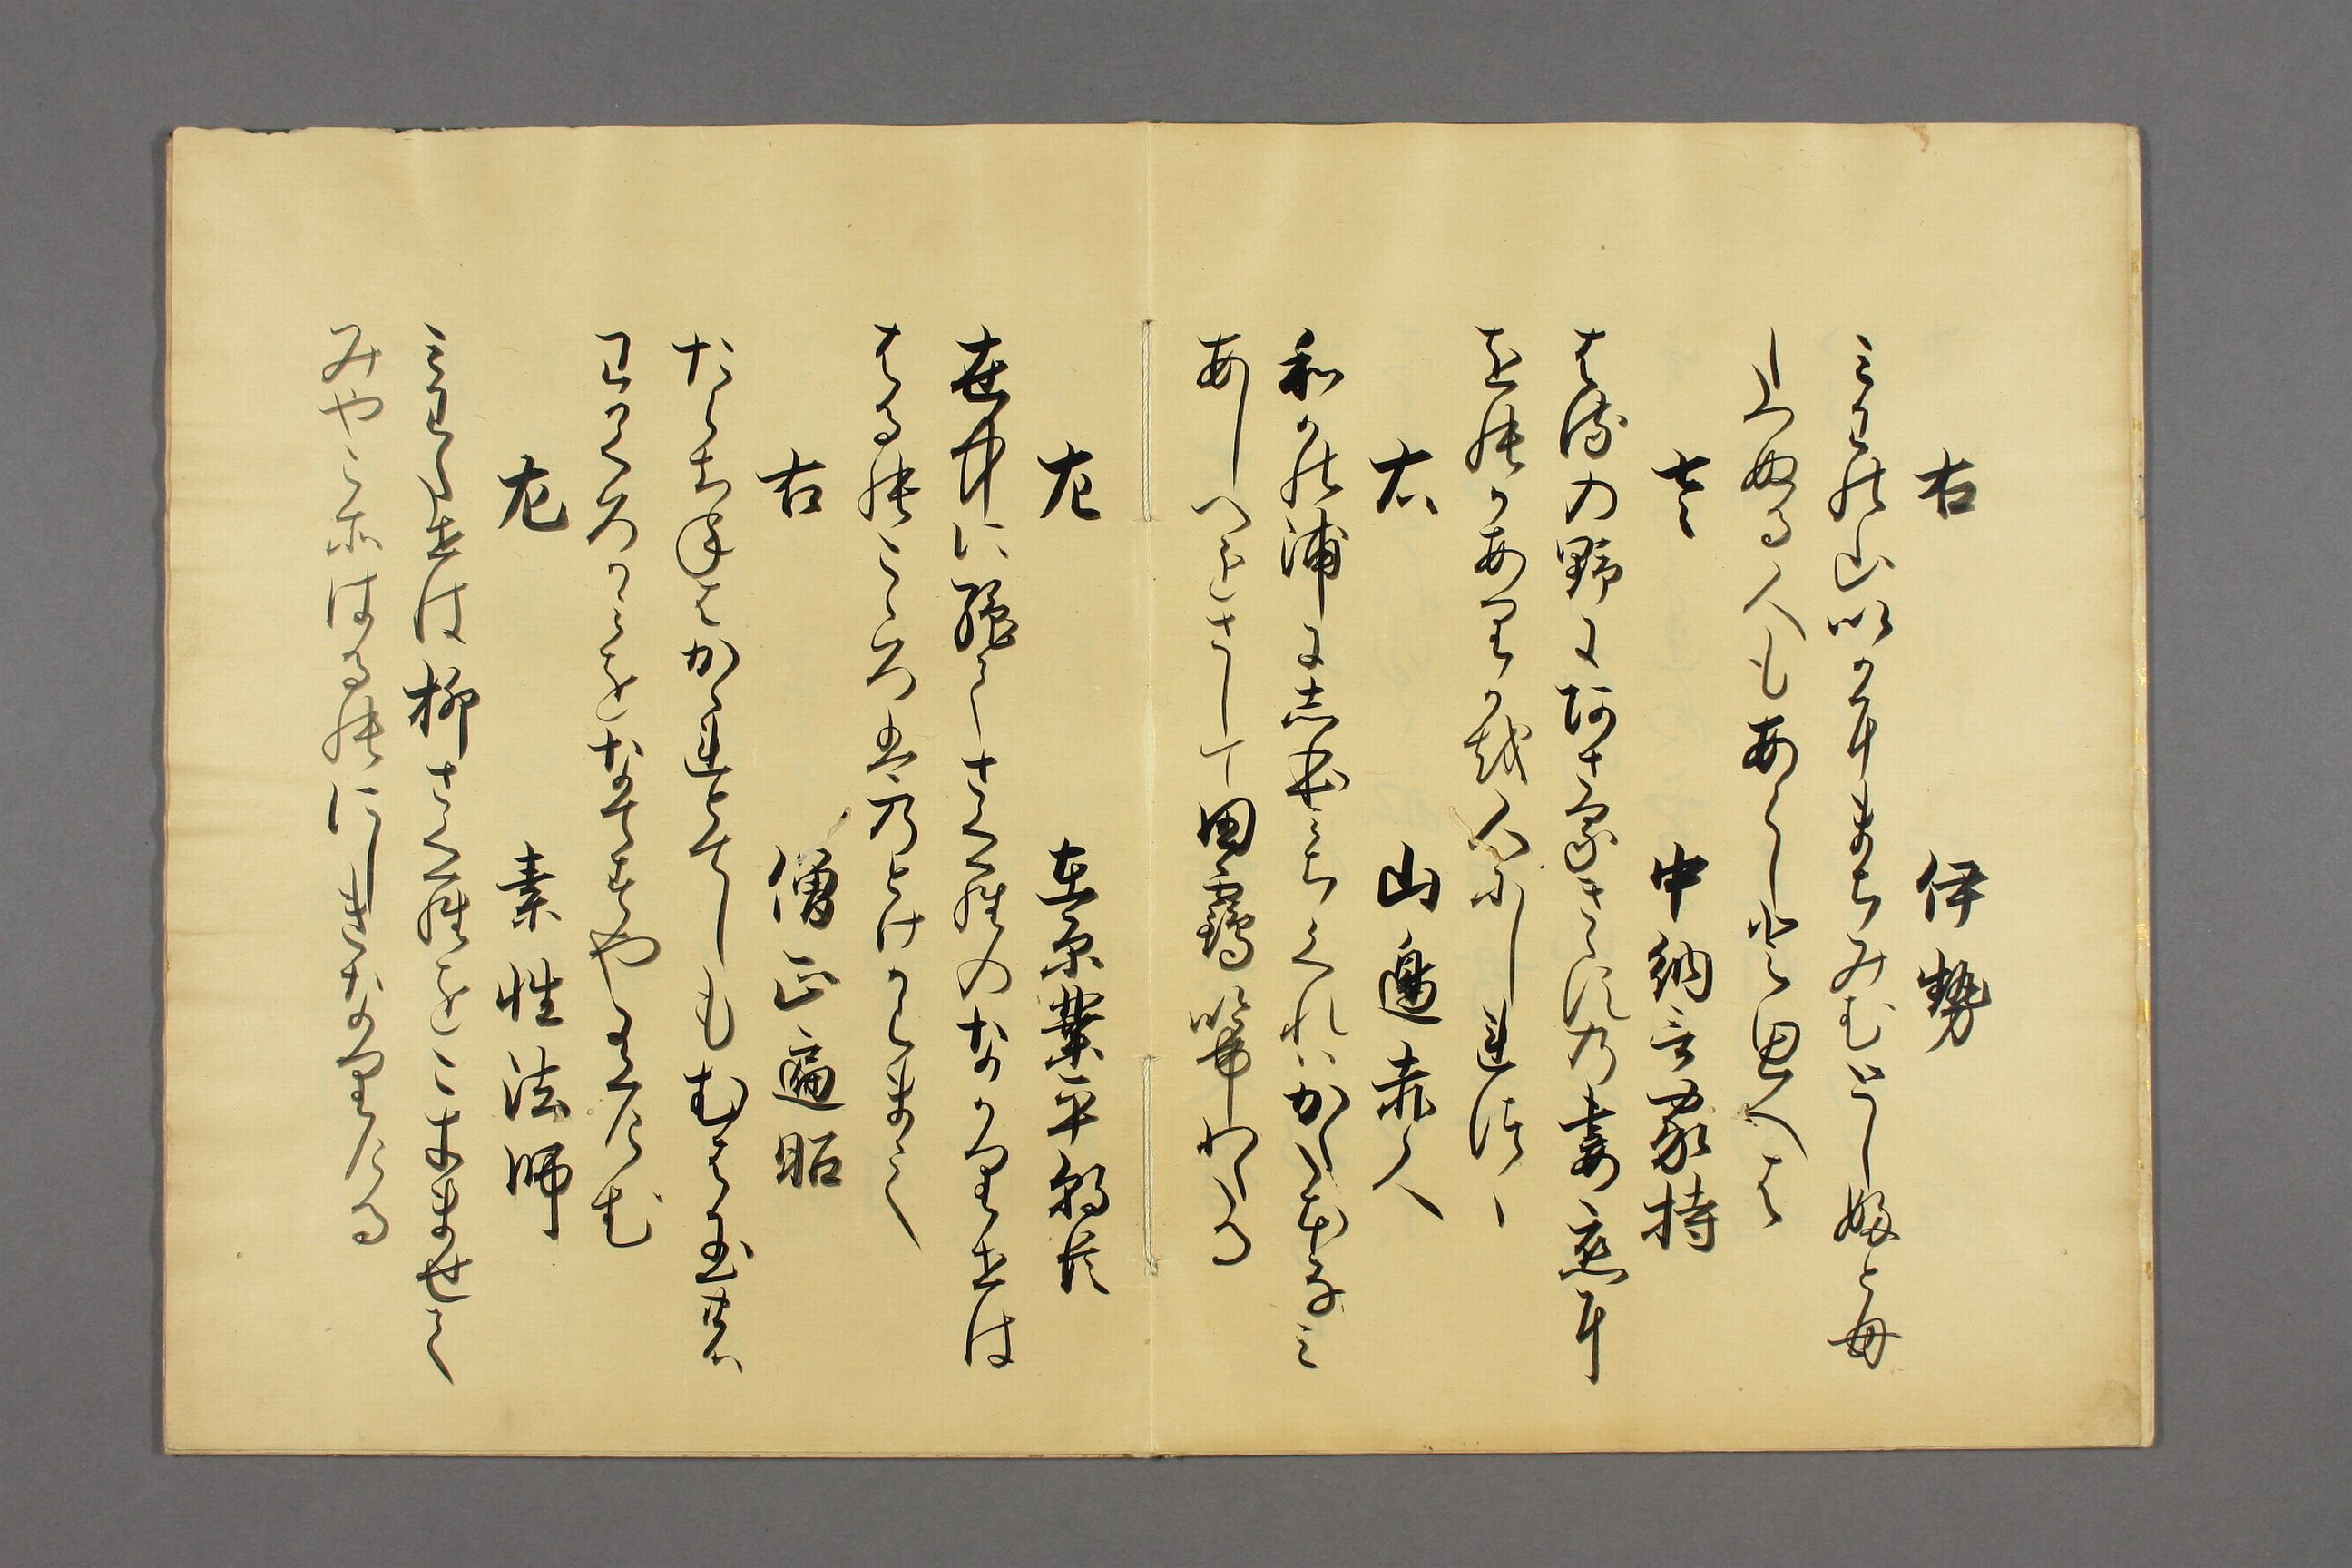 右　伊勢
三わの山いか尓まちみむとし婦と毋
しつぬる人もあらしと思へは
左　中納言家持
者留の野尓阿さ留きゝ須乃妻恋尓
を能可あり可越人尓しれ徒ゝ
右　山邊赤人
和かの浦尓志保三ちくれはかたをなミ
あしへをさして田鶴なきわたる
左　在原業平朝臣
世中に絶てさくらのなかりせは
者るのこゝろ盤乃とけからまし
右　僧正遍昭
たらちねはかゝれとてしもむは玉の
わかくろかみをなてすやありけむ
左　素性法師
三わたせは柳さくらをこきませて
みやこそはるのにしきなりける